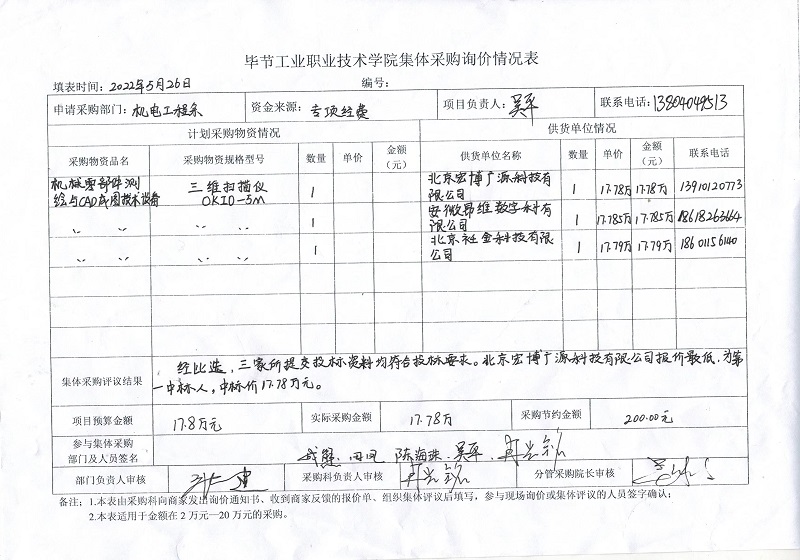 毕节工业职业技术学院集体采购询价情况表
填表时间：2022年5月26日 编号：
申请采购部门：机电工程系 资金来源：专项经费 项目负责人：吴平 联系电话：13804049513
计划采购物资情况 供货单位情况
采购物资品名 采购物资规格型号 数量 单价 金额（元） 供货单位名称 数量 单价 金额（元） 联系电话
机械零部件测绘与CAD成图技术设备 三维扫描仪OKIO-5M 1 北京宏博广源科技有限公司 1 17.78万 17.78万 13910120773
〃 〃 〃 〃 1 安徽昂维数字科有限公司 1 17.785万 17.785万 18618263664
〃 〃 〃 〃 1 北京社金科技有限公司 1 17.79万 17.79万 18601156140
集体采购评议结果 经比选，三家所提交投标资料均符合投标要求。北京宏博广源科技有限公司报价最低，为第
一中标人，中标价17.78万元。
项目预算金额 17.8万元 实际采购金额 17.78万 采购节约金额 200.00元
参与集体采购部门及人员签名 陈海珠、吴平、
部门负责人审核 采购科负责人审核 分管采购院长审核
备注：1.本表由采购科向商家发出询价通知书、收到商家反馈的报价单、组织集体评议后填写，参与现场询价或集体评议的人员签字确认；
2.本表适用于金额在2万元—20万元的采购。